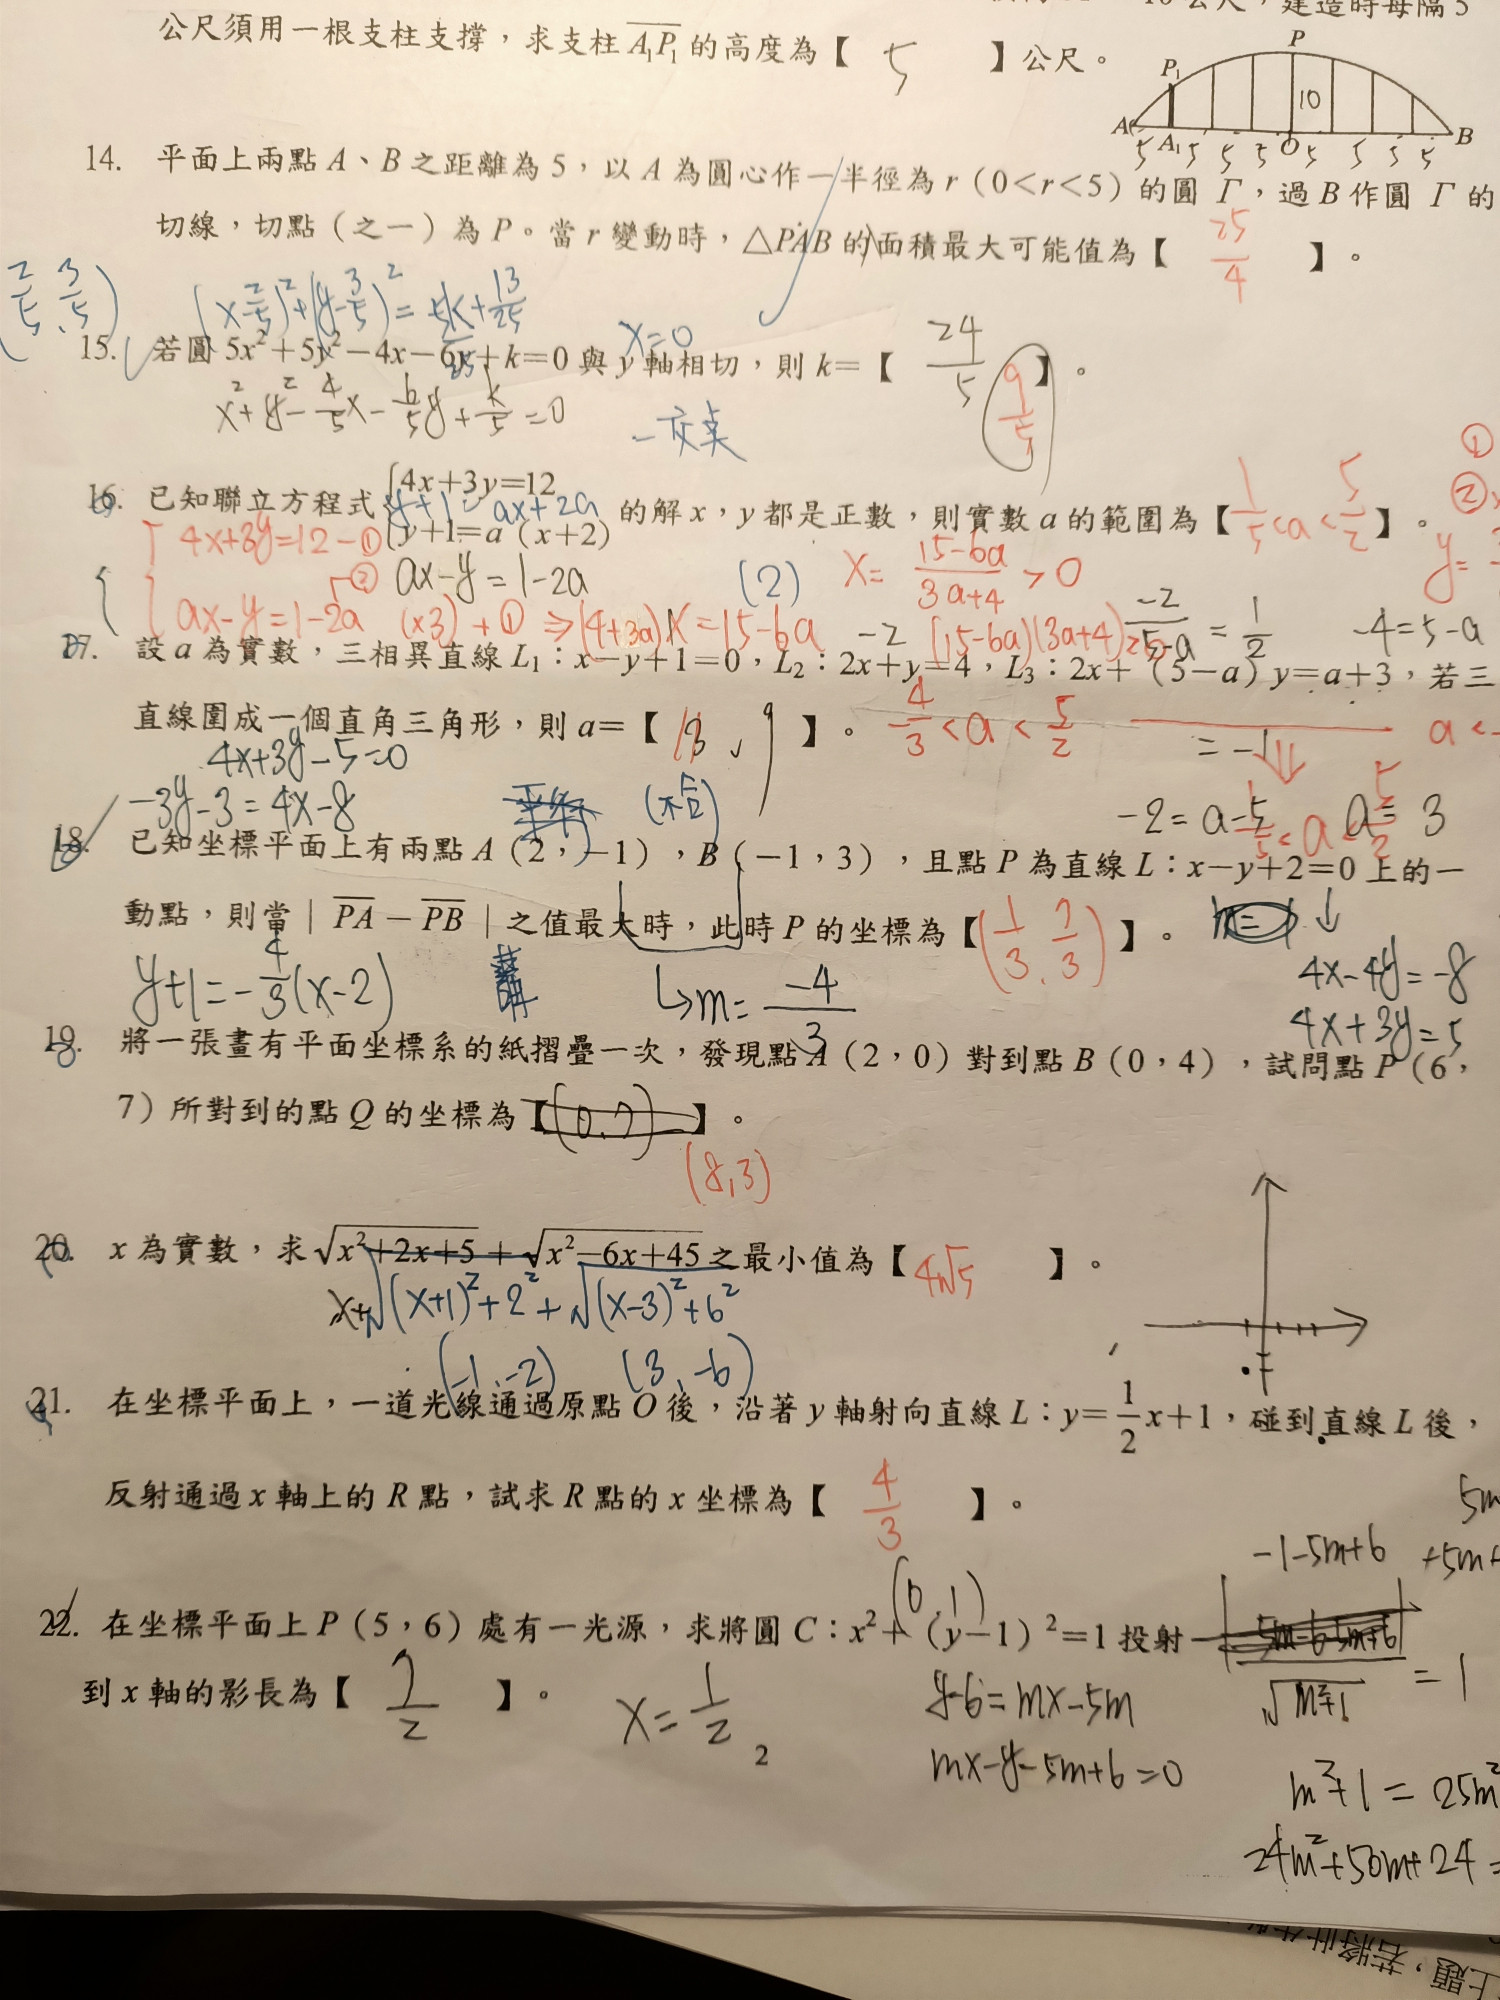 公尺,建造時每隔5
公尺須用一根支柱支撐,求支柱A₁P₁的高度為【 5 】公尺。
P
P₁
10
A A₁ O B
5 5 5 5 5 5 5 5
14. 平面上兩點A、B之距離為5,以A為圓心作一半徑為r(0<r<5)的圓Γ,過B作圓Γ的
切線,切點(之一)為P。當r變動時,△PAB的面積最大可能值為【 25/4 】。
(2/5, 3/5)
x=0
15. 若圓5x²+5y²-4x-6y+k=0與y軸相切,則k=【 24/5 9/5 】。
x²+y²-4/5x-6/5y+k/5=0
一交點
16. 已知聯立方程式{4x+3y=12
y+1=a(x+2)
的解x,y都是正數,則實數a的範圍為【 1/5<a<5/2 】。
y+1= ax+2a
4x+3y=12-①
② ax-y=1-2a
(2)
x= 15-6a/3a+4 >0
ax-y=1-2a (x3)+① ⇒(4+3a)x=15-6a
(15-6a)(3a+4)
-2/5-a = 1/2
-4=5-a
17. 設a為實數,三相異直線L₁:x-y+1=0,L₂:2x+y=4,L₃:2x+(5-a)y=a+3,若三
直線圍成一個直角三角形,則a=【 3、9 】。
-4/3<a<5/2
4x+3y-5=0
= -1
-3y-3=4x-8
(不合)
-2=a-5
a=3
18. 已知坐標平面上有兩點A(2,-1),B(-1,3),且點P為直線L:x-y+2=0上的一
動點,則當|PA-PB|之值最大時,此時P的坐標為【(1/3, 7/3)】。
y+1=-4/3(x-2)
m= -4/3
4x-4y=-8
4x+3y=5
19. 將一張畫有平面坐標系的紙摺疊一次,發現點A(2,0)對到點B(0,4),試問點P(6,
7)所對到的點Q的坐標為【(0,7)】。
(8,3)
20. x為實數,求√x²+2x+5+√x²-6x+45之最小值為【 4√5 】。
√(x+1)²+2²+√(x-3)²+6²
(-1,-2) (3,-6)
21. 在坐標平面上,一道光線通過原點O後,沿著y軸射向直線L:y=1/2x+1,碰到直線L後,
反射通過x軸上的R點,試求R點的x坐標為【 4/3 】。
-1-5m+6
(0,1)
22. 在坐標平面上P(5,6)處有一光源,求將圓C:x²+(y-1)²=1投射
到x軸的影長為【 7/2 】。
x=1/2
y-6=mx-5m
√m²+1 =1
mx-y-5m+6=0
m²+1=25m²
24m²+50m+24=
2